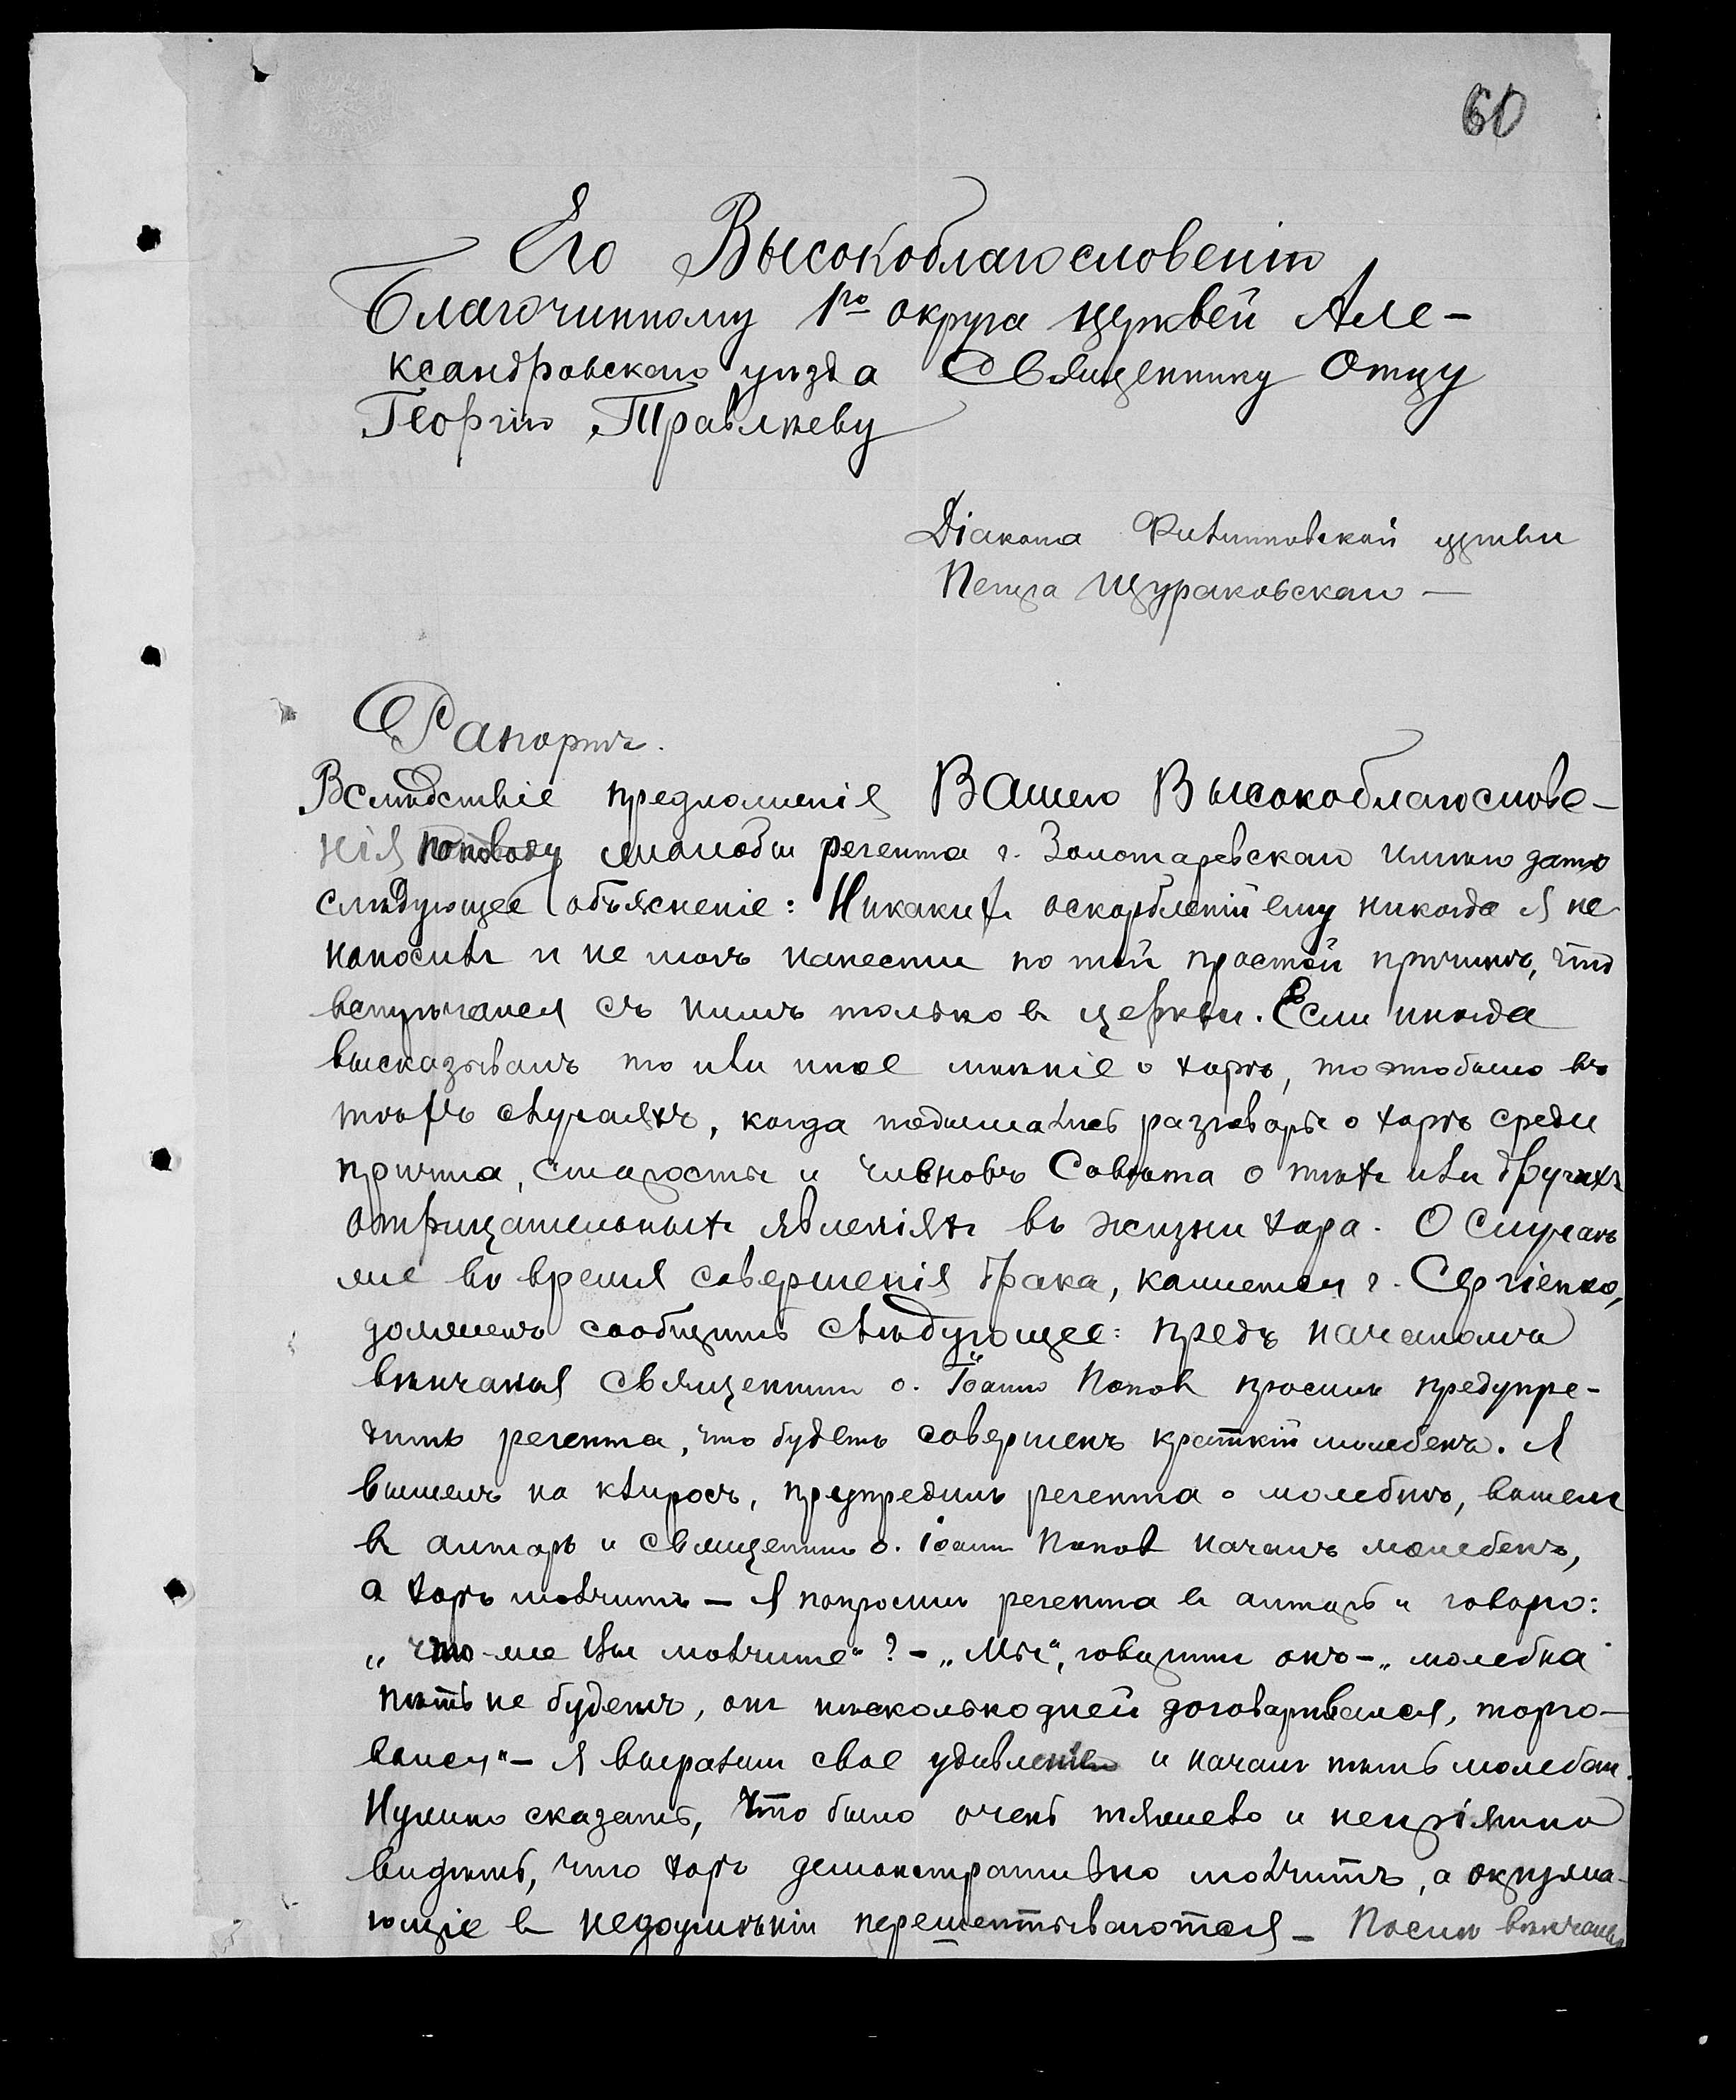 60
Его Высокоблагословенію
Благочинному 1го округа церквей Але-
ксандровскаго уѣзда Священнику Отцу
Георгію
Діакона Филипповской церкви
Петра Щураковскаго —
Рапортъ.
Вслѣдствіе предложенія Вашего Высокоблагослове-
нія по поводу жалобы регента г. Золотаревскаго имѣю дать
слѣдующее объясненіе: Никакихъ оскорбленій ему никогда я не
наносилъ и не могъ нанести по той простой причинѣ, что
встрѣчался съ нимъ только въ церкви. Если иногда
высказывалъ то или иное мнѣніе о хорѣ, то это было въ
тѣхъ случаяхъ, когда подымались разговоры о хорѣ среди
причта, старосты и членовъ Совѣта о тѣхъ или другихъ
отрицательныхъ явленіяхъ въ жизни хора. О случаѣ
же во время совершенія брака, кажется г. Сергіенко,
долженъ сообщить слѣдующее: предъ началомъ
вѣнчанія священникъ о. Іоаннъ Поповъ просилъ предупре-
дить регента, что будетъ совершенъ краткій молебенъ. Я
вышелъ на клиросъ, предупредилъ регента о молебнѣ, вошелъ
въ алтарь и священникъ о. Іоаннъ Поповъ началъ молебенъ,
а хоръ молчитъ — Я попросилъ регента въ алтарь и говорю:
„что-же Вы молчите"? — „Мы", говоритъ онъ — „молебна
пѣть не будемъ, онъ нѣсколько дней договаривался, торго-
вался" — Я выразилъ свое удивленіе и началъ пѣть молебенъ.
Нужно сказать, что было очень тяжело и непріятно
видѣть, что хоръ демонстративно молчитъ, а окружа-
ющіе въ недоумѣніи перешептываются — Послѣ вѣнчанія